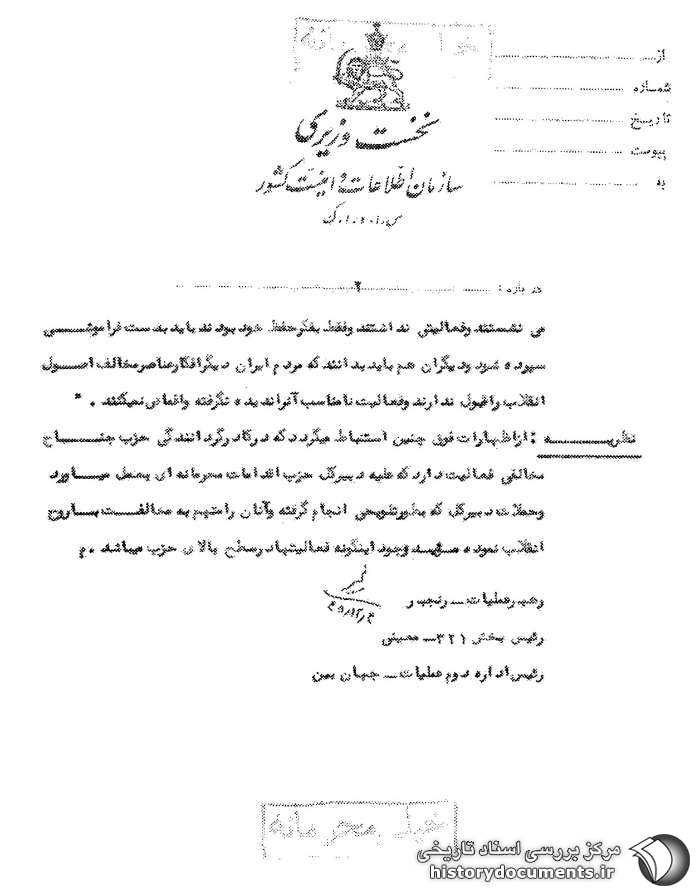 خیلی محرمانه
نخست وزیری
سازمان اطلاعات و امنیت کشور
از
شماره
تاریخ
پیوست
به
درباره : ۲
می نشستند وفعالیتی نداشتند وفقط بفکرحفظ خود بودند باید بدست فراموشی
سپرده شود ودیگران هم باید بدانند که مردم ایران دیگرافکارعناصرمخالف اصول
انقلاب راقبول ندارند وفعالیت نامناسب آنرا ندیده نگرفته واغماض نمیکنند . "
نظریه : ازاظهارات فوق چنین استنباط میگردد که درکادرگردانندگی حزب جناح
مخالفی فعالیت دارد که علیه دبیرکل حزب اقدامات محرمانه ای بعمل میاورد
وحملات دبیرکل که بطورتلویحی انجام گرفته وآنان رامتهم به مخالفت باروح
انقلاب نموده موید وجود اینگونه فعالیتهادرسطح بالای حزب میباشد .م
رهبرعملیات ـ رنجبر
رئیس بخش ۳۲۱ ـ معینی
رئیس اداره دوم عملیات ـ جهان بین
خیلی محرمانه
مرکز بررسی اسناد تاریخی
historydocuments.ir